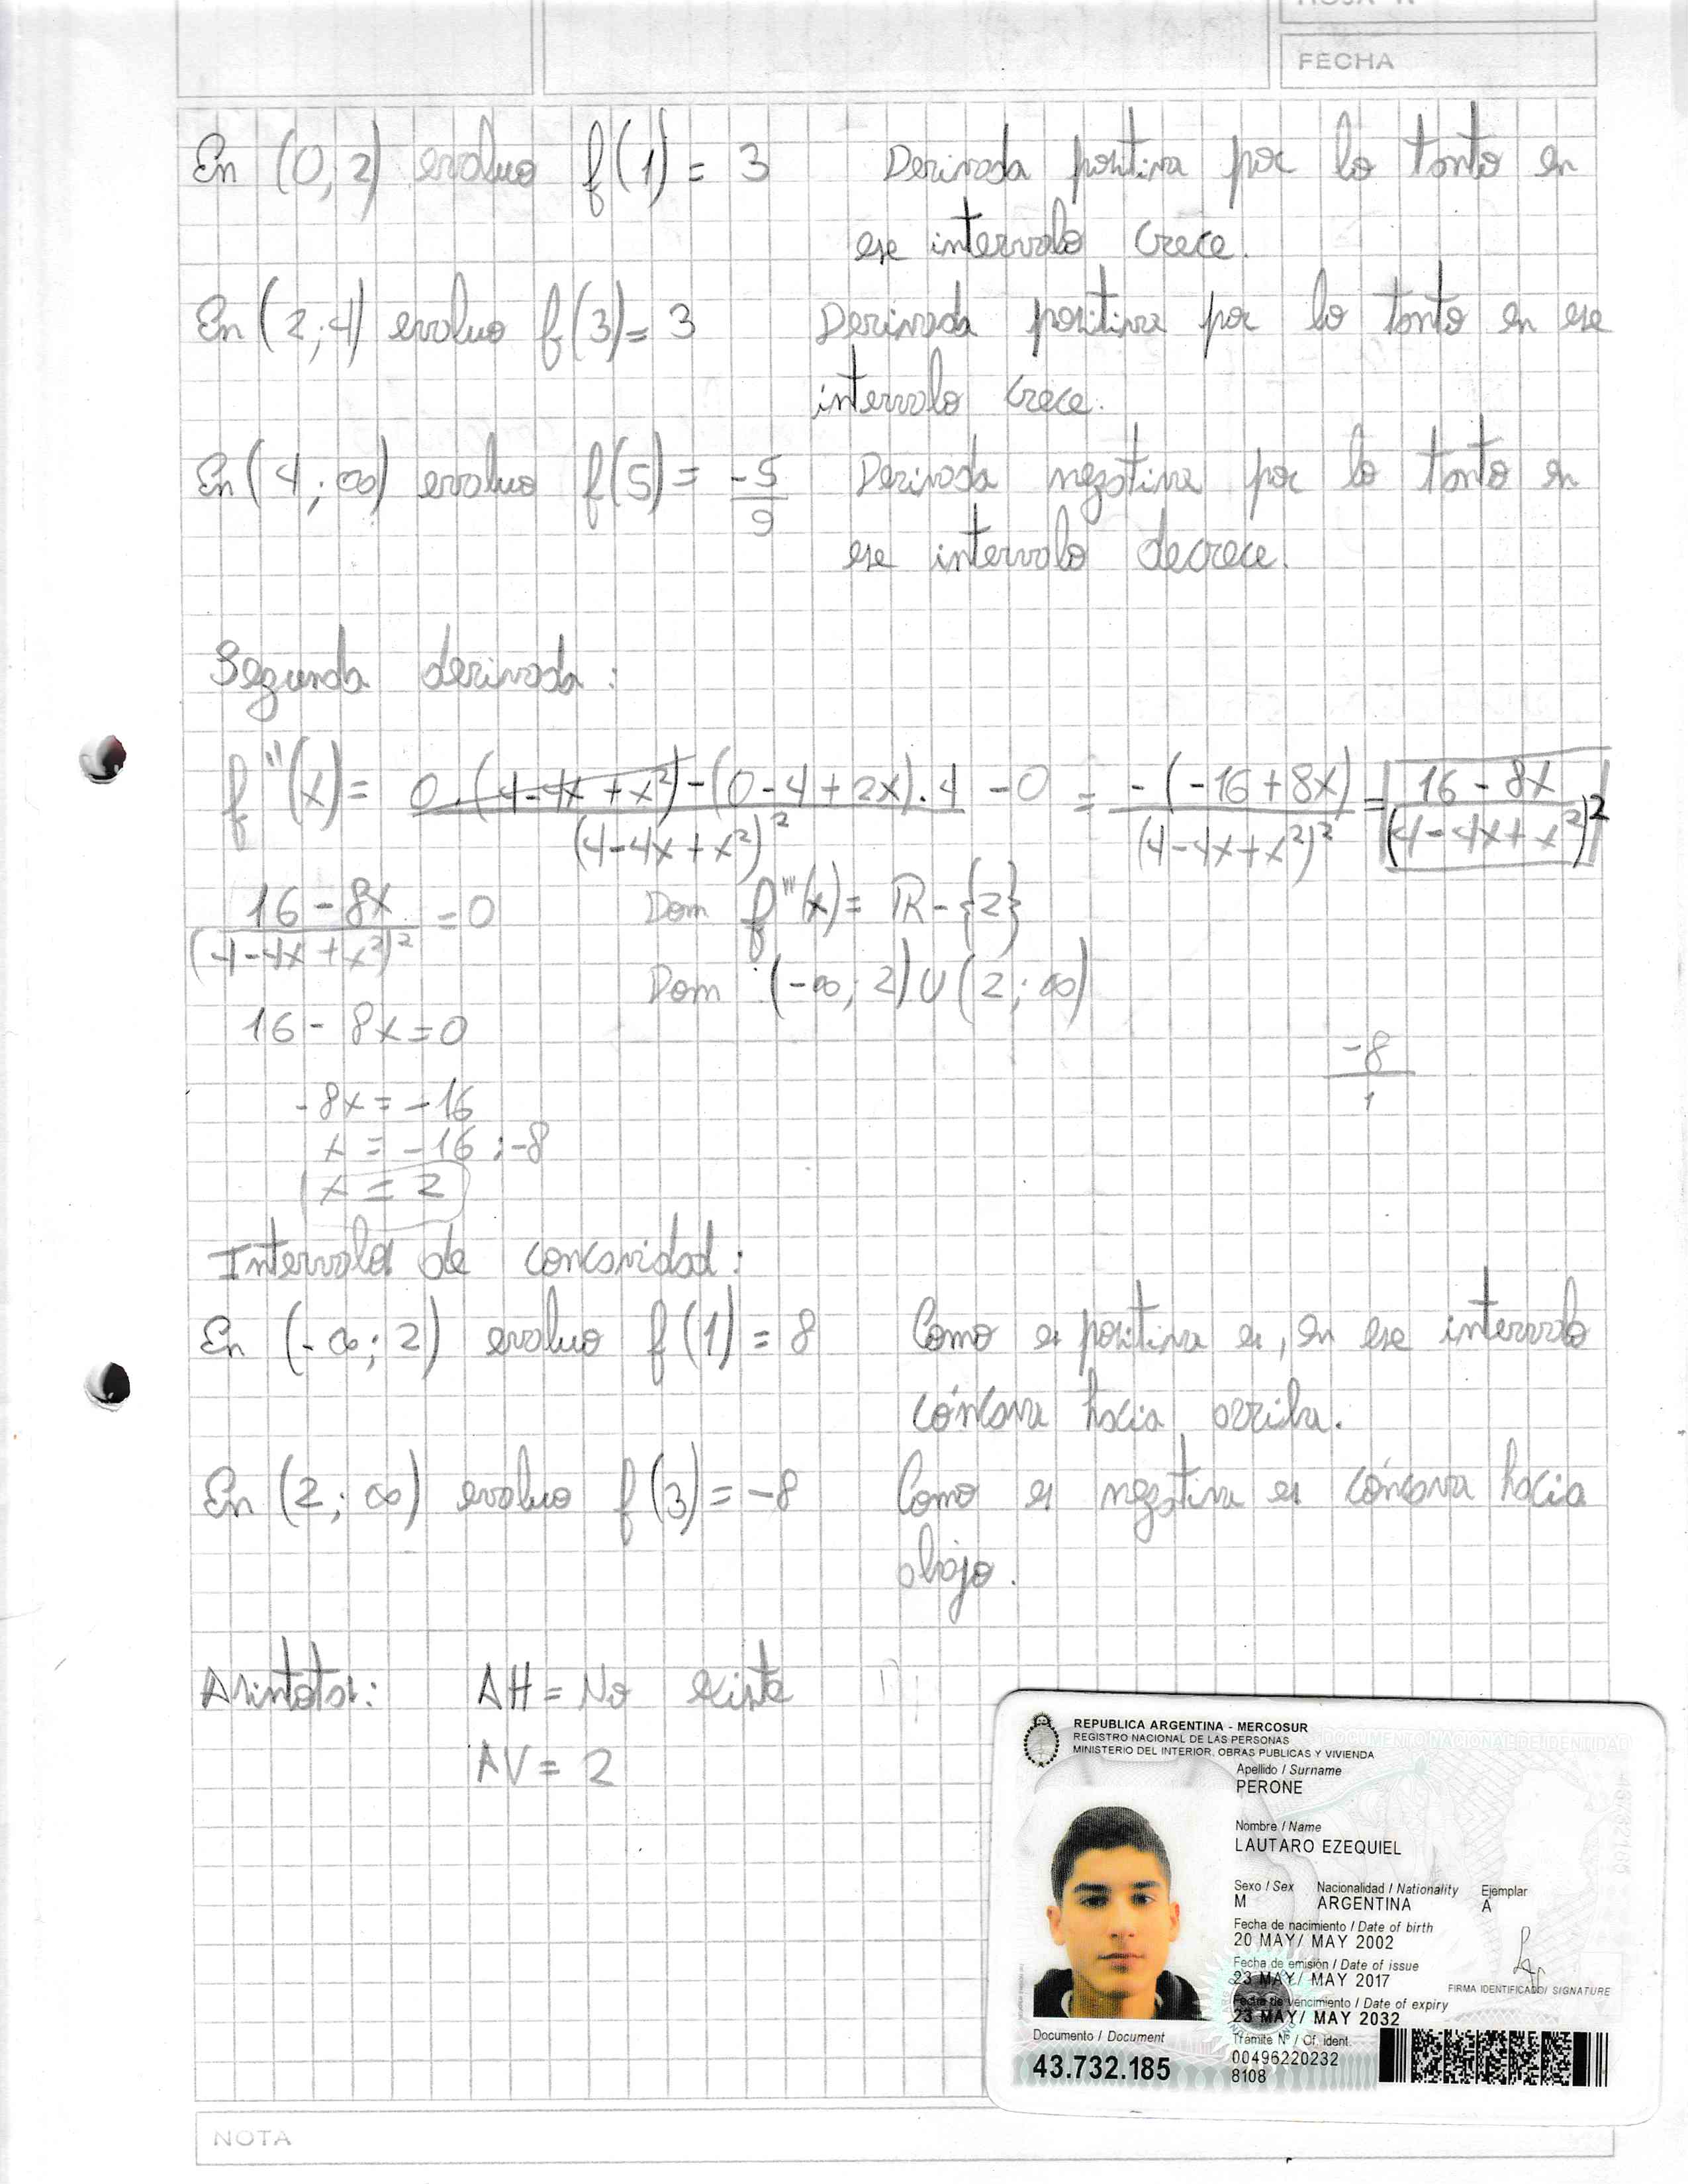 HOJA N°
FECHA
En (0, 2) evaluo f(1) = 3 Derivada positiva por lo tanto en
ese intervalo crece.
En (2; 4) evaluo f(3) = 3 Derivada positiva por lo tanto en ese
intervalo crece.
En (4; ∞) evaluo f(5) = -5/9 Derivada negativa por lo tanto en
ese intervalo decrece.
Segunda derivada:
f''(x) = (0 . (4-4x+x²) - (0-4+2x) . 4)/(4-4x+x²)² - 0 = -(-16+8x)/(4-4x+x²)² = (16-8x)/(4-4x+x²)²
(16-8x)/(4-4x+x²)² = 0 Dom f''(x) = R - {2}
Dom (-∞; 2) U (2; ∞)
16 - 8x = 0
-8/1
-8x = -16
x = -16 : -8
x = 2
Intervalos de concavidad:
En (-∞; 2) evaluo f(1) = 8 Como es positiva es, en ese intervalo
cóncava hacia arriba.
En (2; ∞) evaluo f(3) = -8 Como es negativa es cóncava hacia
abajo.
Asintotas: AH = No existe
AV = 2
REPUBLICA ARGENTINA - MERCOSUR
REGISTRO NACIONAL DE LAS PERSONAS
MINISTERIO DEL INTERIOR, OBRAS PUBLICAS Y VIVIENDA
DOCUMENTO NACIONAL DE IDENTIDAD
Apellido / Surname
PERONE
Nombre / Name
LAUTARO EZEQUIEL
Sexo / Sex Nacionalidad / Nationality Ejemplar
M ARGENTINA A
Fecha de nacimiento / Date of birth
20 MAY/ MAY 2002
Fecha de emisión / Date of issue
23 MAY/ MAY 2017
FIRMA IDENTIFICADO/ SIGNATURE
Fecha de vencimiento / Date of expiry
23 MAY/ MAY 2032
Documento / Document
43.732.185
Trámite N° / Of. ident.
00496220232
8108
NOTA